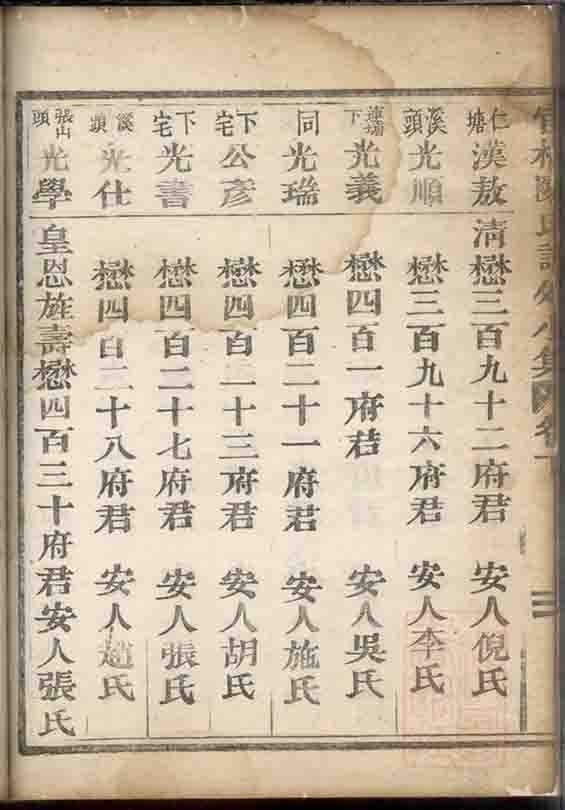 仁塘 漢敖 清懋三百九十二府君 安人倪氏
溪頭 光順 懋三百九十六府君 安人李氏
蓮瑞下 光義 懋四百一府君 安人吳氏
同 光瑞 懋四百二十一府君 安人施氏
下宅 公彥 懋四百二十三府君 安人胡氏
下宅 光書 懋四百二十七府君 安人張氏
溪頭 光仕 懋四百二十八府君 安人趙氏
張山頭 光學 皇恩旌壽懋四百三十府君安人張氏